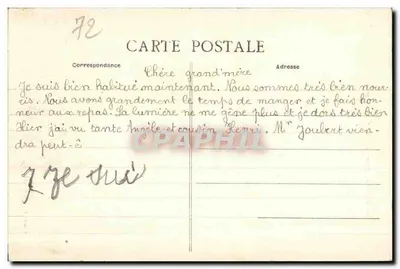 72
CARTE POSTALE
Correspondance
Adresse
Chère grand'mère
Je suis bien habitué maintenant. Nous sommes très bien nour-
ris. Nous avons grandement le temps de manger et je fais hon-
neur aux repas. La lumière ne me gêne plus et je dors très bien
Hier j'ai vu tante Angèle et cousin Henri. Mr Joubert vien-
dra peut-ê
7 Je suis
CPAPHIL